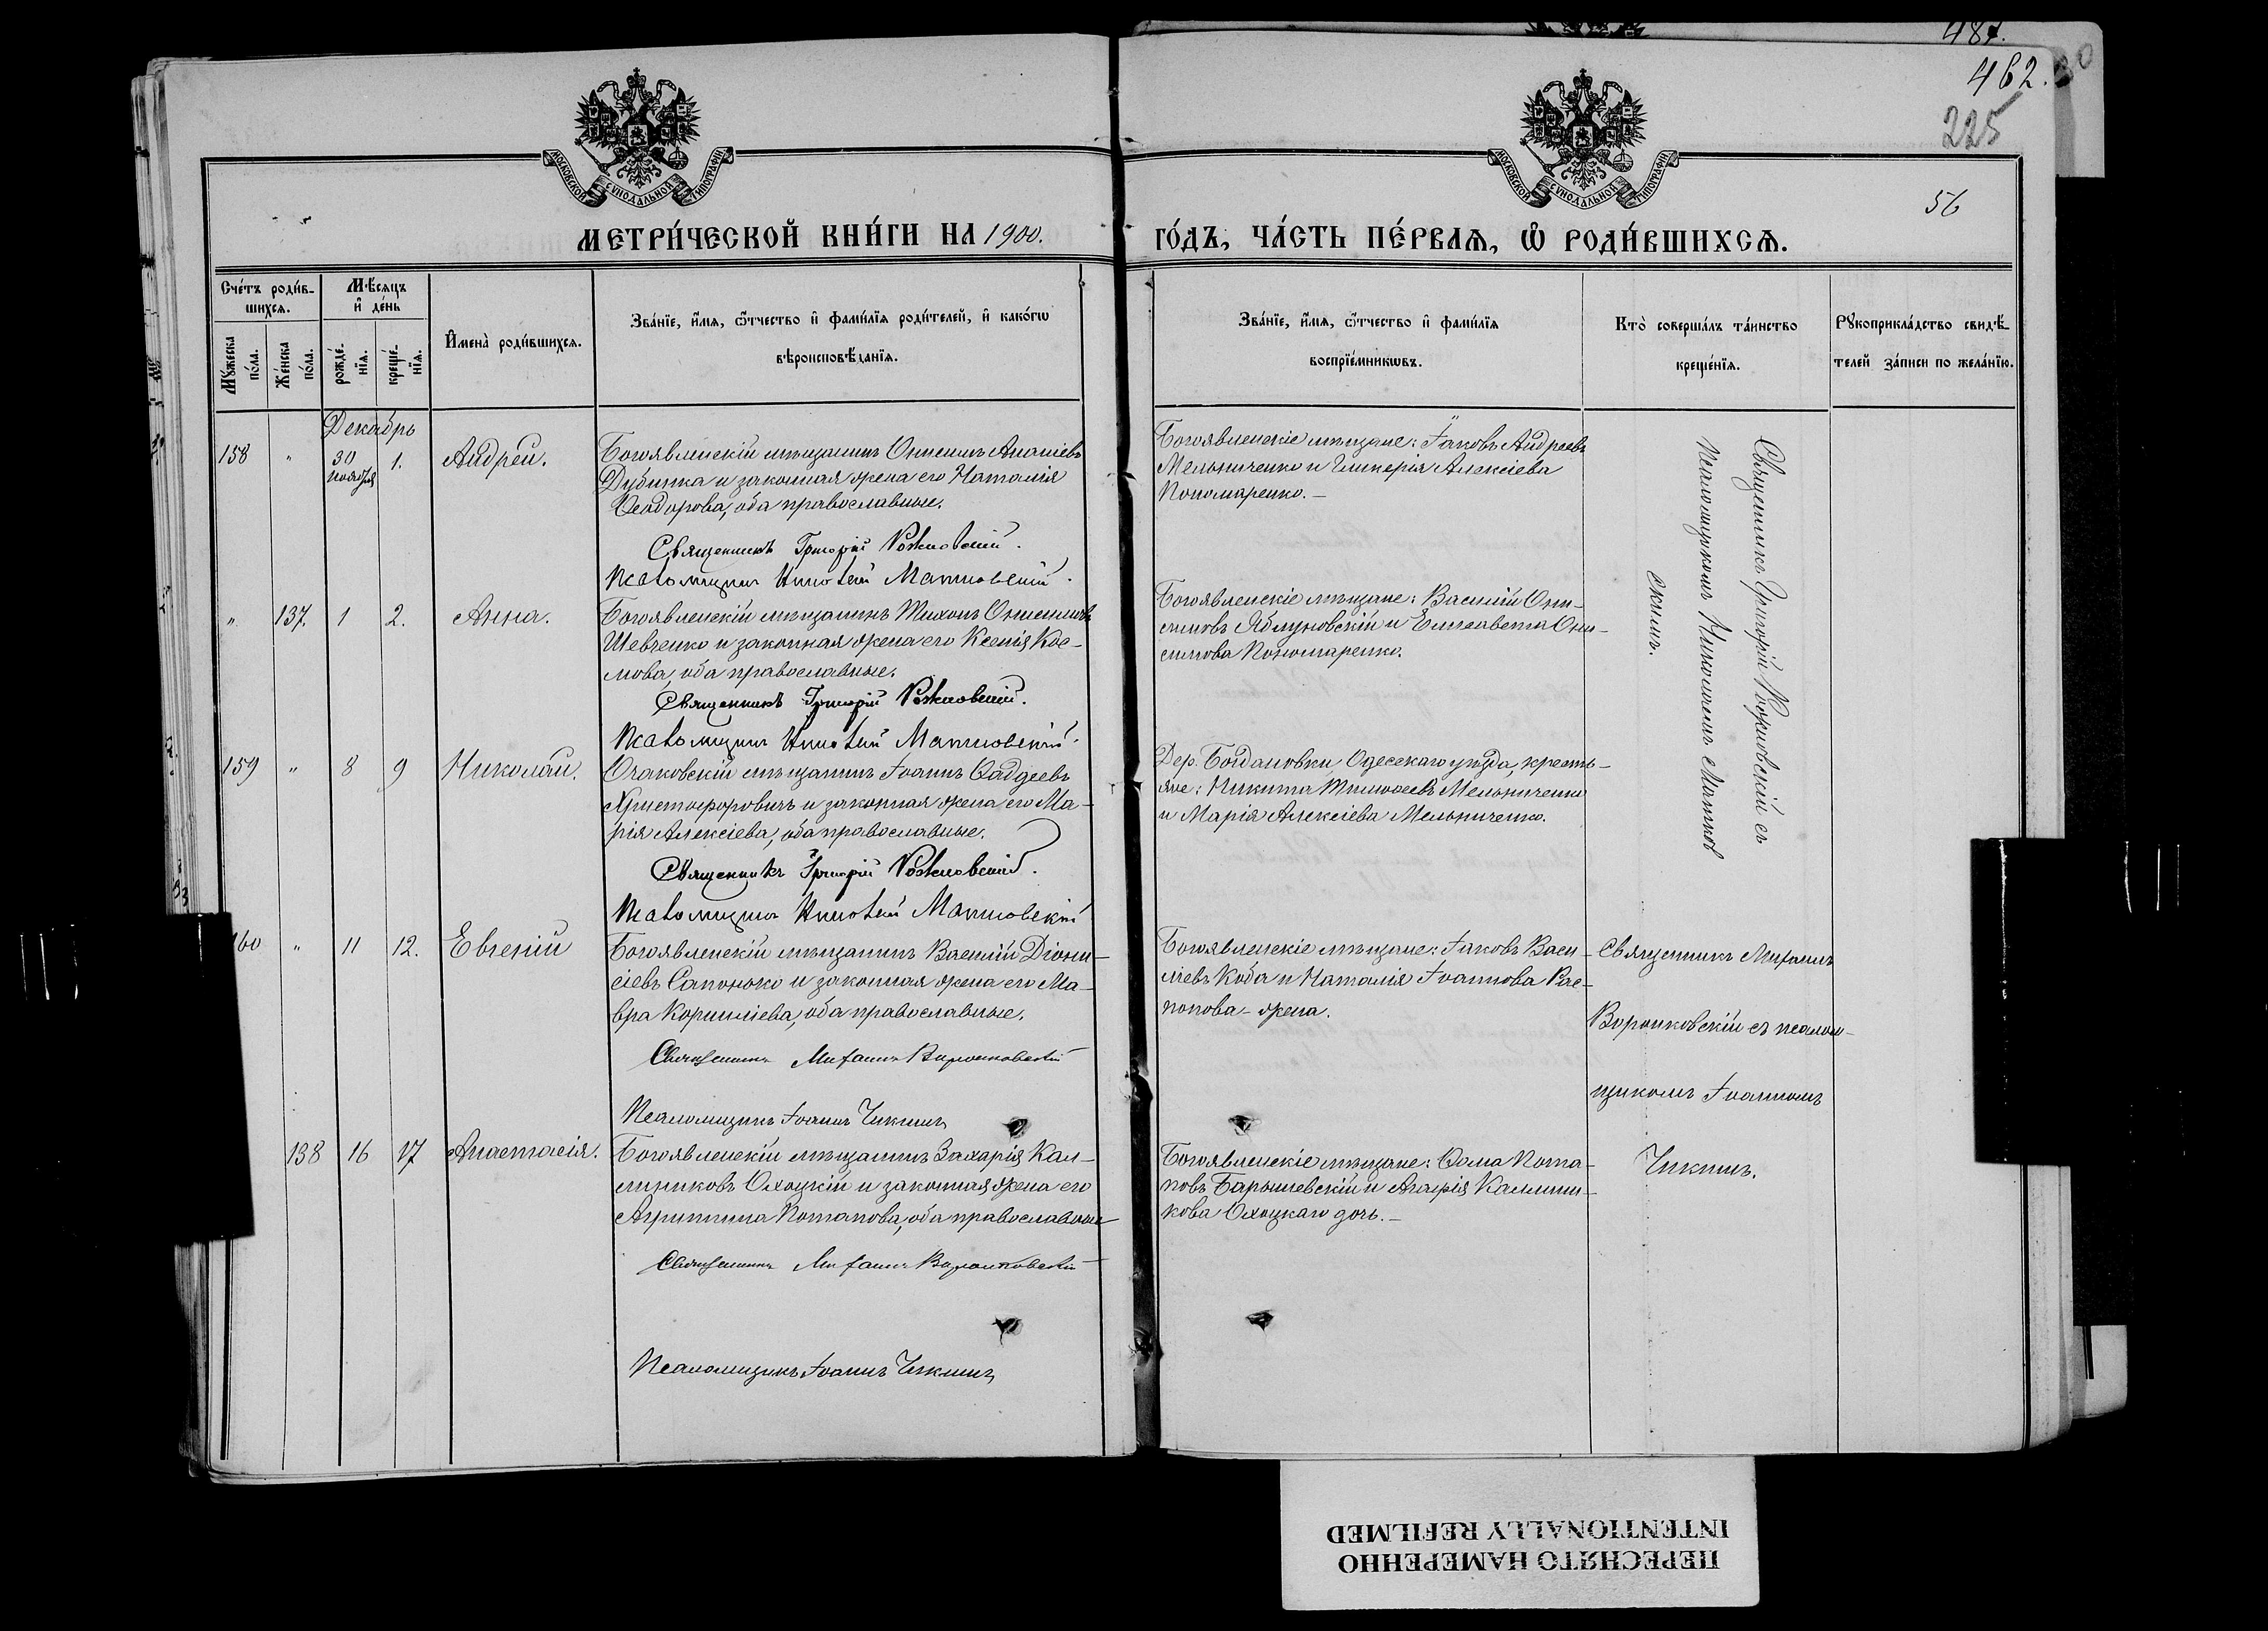 487.
462.
225
56
МОСКОВСКОЙ СѴНОДАЛЬНОЙ ТИПОГРАФІИ
МОСКОВСКОЙ СѴНОДАЛЬНОЙ ТИПОГРАФІИ
МЕТРИ́ЧЕСКОЙ КНИ́ГИ НА 1900.
ГО́ДЪ, ЧА́СТЬ ПЕ́РВАѦ, Ѡ҆ РОДИ́ВШИХСѦ.
Сче́тъ роди́в-
шихсѧ.
Мꙋ́жеска по́ла.
Же́нска по́ла.
Мѣ́сѧцъ
и҆ де́нь
рожде́-нїѧ.
креще́-нїѧ.
И҆мена̀ роди́вшихсѧ.
Зва́нїе, и҆́мѧ, ѻ҆́тчество и҆ фами́лїѧ роди́телей, и҆ како́гѡ
вѣроисповѣ́данїѧ.
Зва́нїе, и҆́мѧ, ѻ҆́тчество и҆ фами́лїѧ
воспрїе́мникѡвъ.
Кто̀ соверша́лъ та́инство
креще́нїѧ.
Рꙋкоприкла́дство свидѣ́-
телей за́писи по жела́нїю.
Декабрь
158 " 30 ноября 1. Андрей.
Богоявленскій мѣщанинъ Онисимъ Ананіевъ
Дубинка и законная жена его Наталія
Ѳеодорова, оба православные.
Священникъ Григорій
Псаломщикъ
Богоявленскіе мѣщане: Іаковъ Андреевъ
Мельниченко и Гликерія Алексіева
Пономаренко.—
Священникъ Григорій съ
псаломщикомъ
" 137. 1 2. Анна.
Богоявленскій мѣщанинъ Тихонъ Онисимовъ
Шевченко и законная жена его Ксенія Кос-
мова, оба православные.
Священникъ Григорій
Псаломщикъ
Богоявленскіе мѣщане: Василій Они-
симовъ Яблуновскій и Елисавета Они-
симова Пономаренко.
159 " 8 9 Николай.
Очаковскій мѣщанинъ Іоаннъ Ѳаддеевъ
Христофоровичъ и законная жена его Ма-
рія Алексіева, оба православные.
Священникъ Григорій
Псаломщикъ
Дер. Богдановки, Одесскаго уѣзда, кресть-
яне: Никита Тимоѳеевъ Мельниченко
и Марія Алексіева Мельниченко.
160 " 11 12. Евгеній
Богоявленскій мѣщанинъ Василій Діони-
сіевъ Сапонько и законная жена его Ма-
вра Корниліева, оба православные.
Священникъ Михаилъ Воронковскій
Псаломщикъ Іоаннъ Чикинъ
Богоявленскіе мѣщане: Іаковъ Васи-
ліевъ Коба и Наталія Іоаннова Рас-
попова - жена.
Священникъ Михаилъ
Воронковскій съ псалом-
щикомъ Іоанномъ
Чикинъ.
138 16 17 Анастасія.
Богоявленскій мѣщанинъ Захарія Кал-
линиковъ Охоцкій и законная жена его
Агриппина Потапова, оба православные
Священникъ Михаилъ Воронковскій
Псаломщикъ Іоаннъ Чикинъ
Богоявленскіе мѣщане: Ѳома Пота-
повъ Барышевскій и Агафія Каллини-
кова Охоцкаго дочь.—
ПЕРЕСНЯТО НАМЕРЕННО
INTENTIONALLY REFILMED